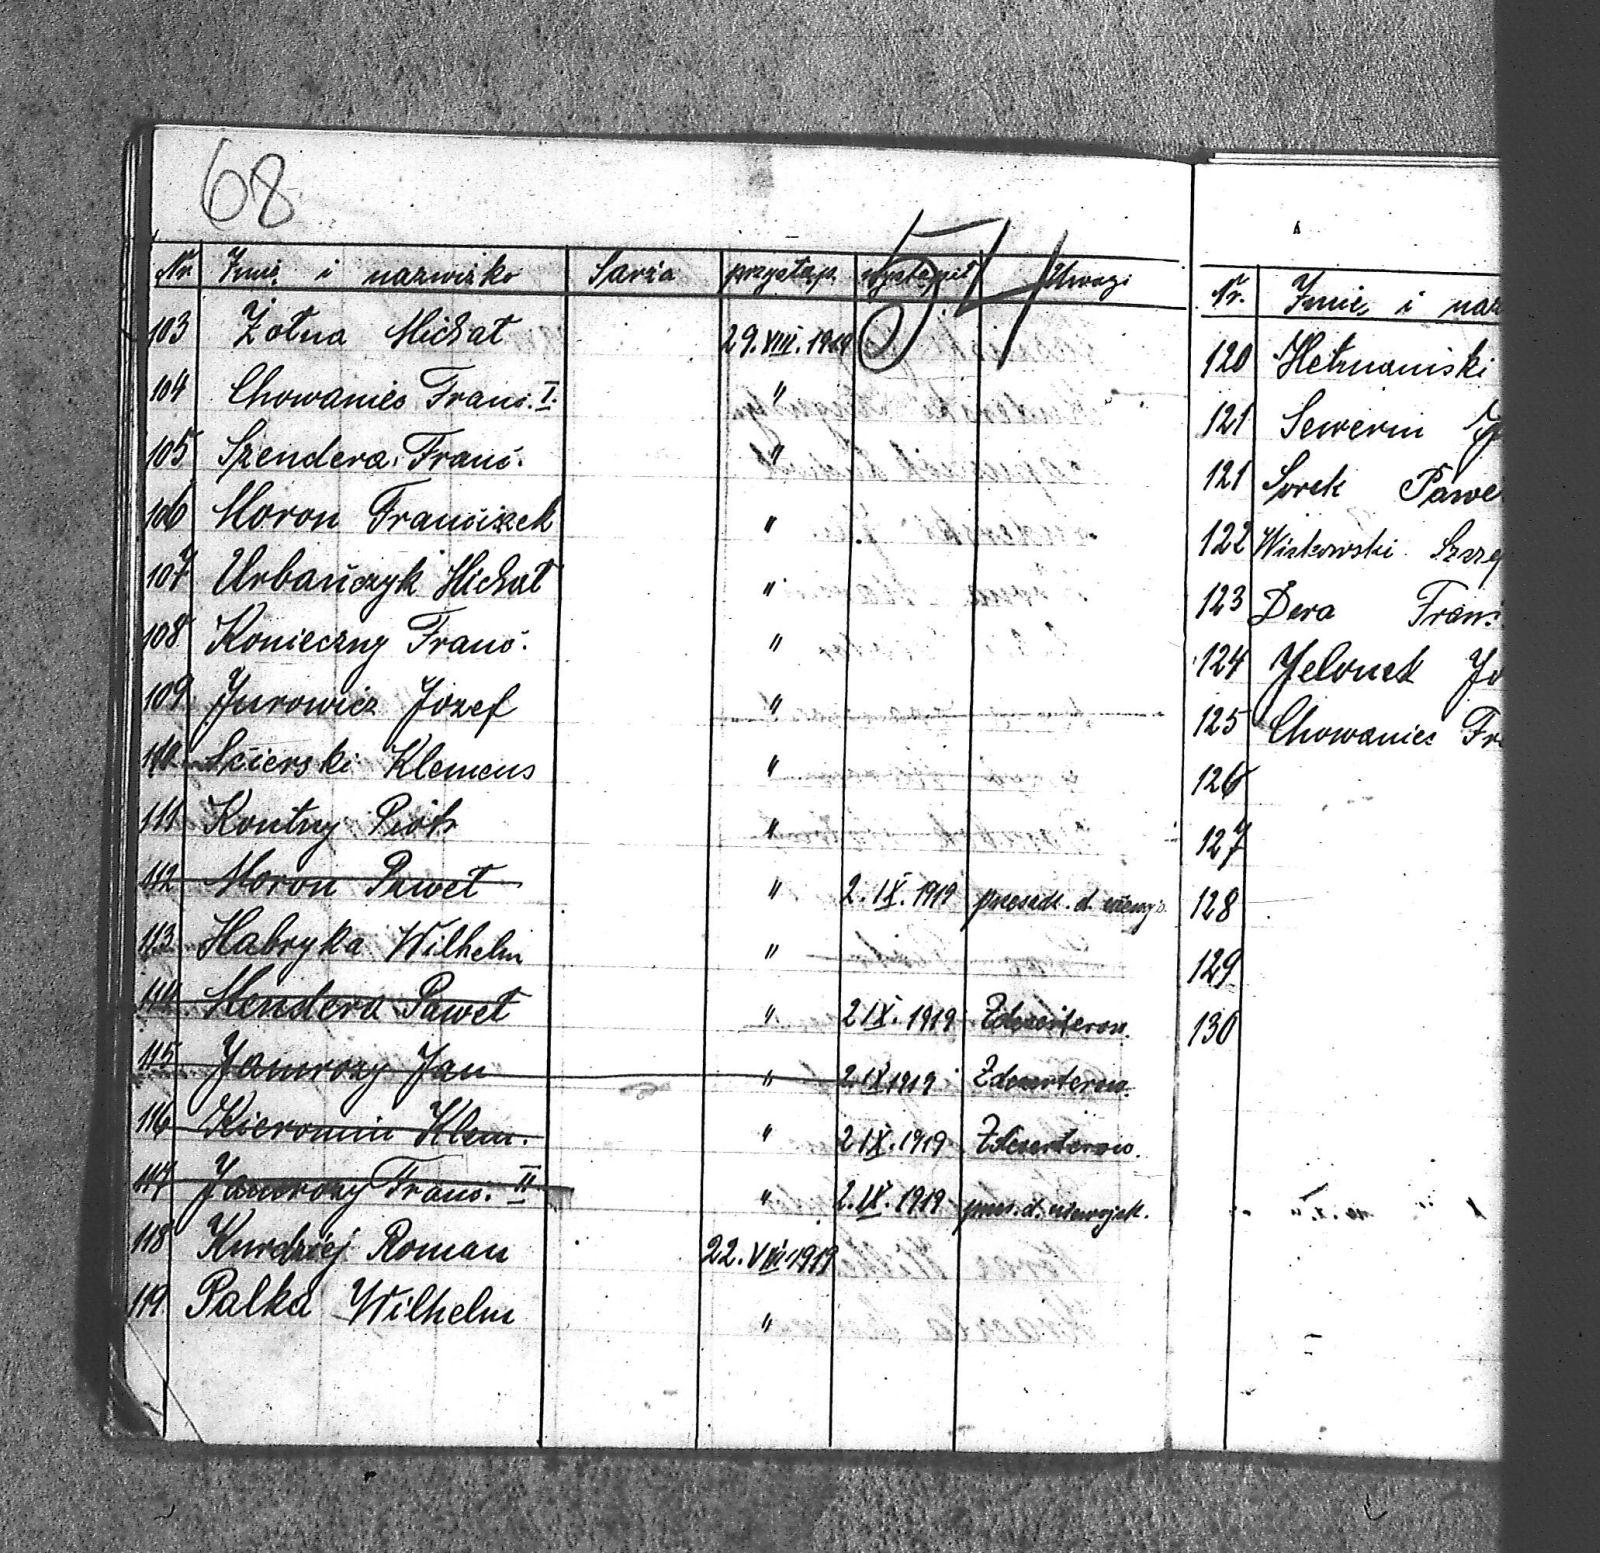 68
54
Nr. Imię i nazwisko Sarża przystąp. wystąpił Uwagi
103 Żołna Michał 29.VIII.1919
104 Chowaniec Franc. I. "
105 Szendera Franc. "
106 Moroń Franciszek "
107 Urbańczyk Michał "
108 Konieczny Franc. "
109 Jurowicz Józef "
110 Scierski Klemens "
111 Kontny Piotr "
112 Moroń Paweł " 2.IX.1919
113 Habryka Wilhelm "
114 Mendera Paweł " 2 IX.1919 Zdezerterow.
115 Jamrozy Jan " 2.IX 1919 Zdezerterow.
116 Kieromin Klem. " 2 IX.1919 Zdezerterow.
117 Jamrozy Franc. II " 2.IX.1919
118 Kurdziej Roman 22.VIII.1919
119 Palka Wilhelm "
Nr. Imię i naz
120 Hetmaniski
121 Sewerin
121 Sorek Pawe
122 Witkowski Szcze
123 Dera Franc
124 Jelonek Jo
125 Chowaniec Fr
126
127
128
129
130